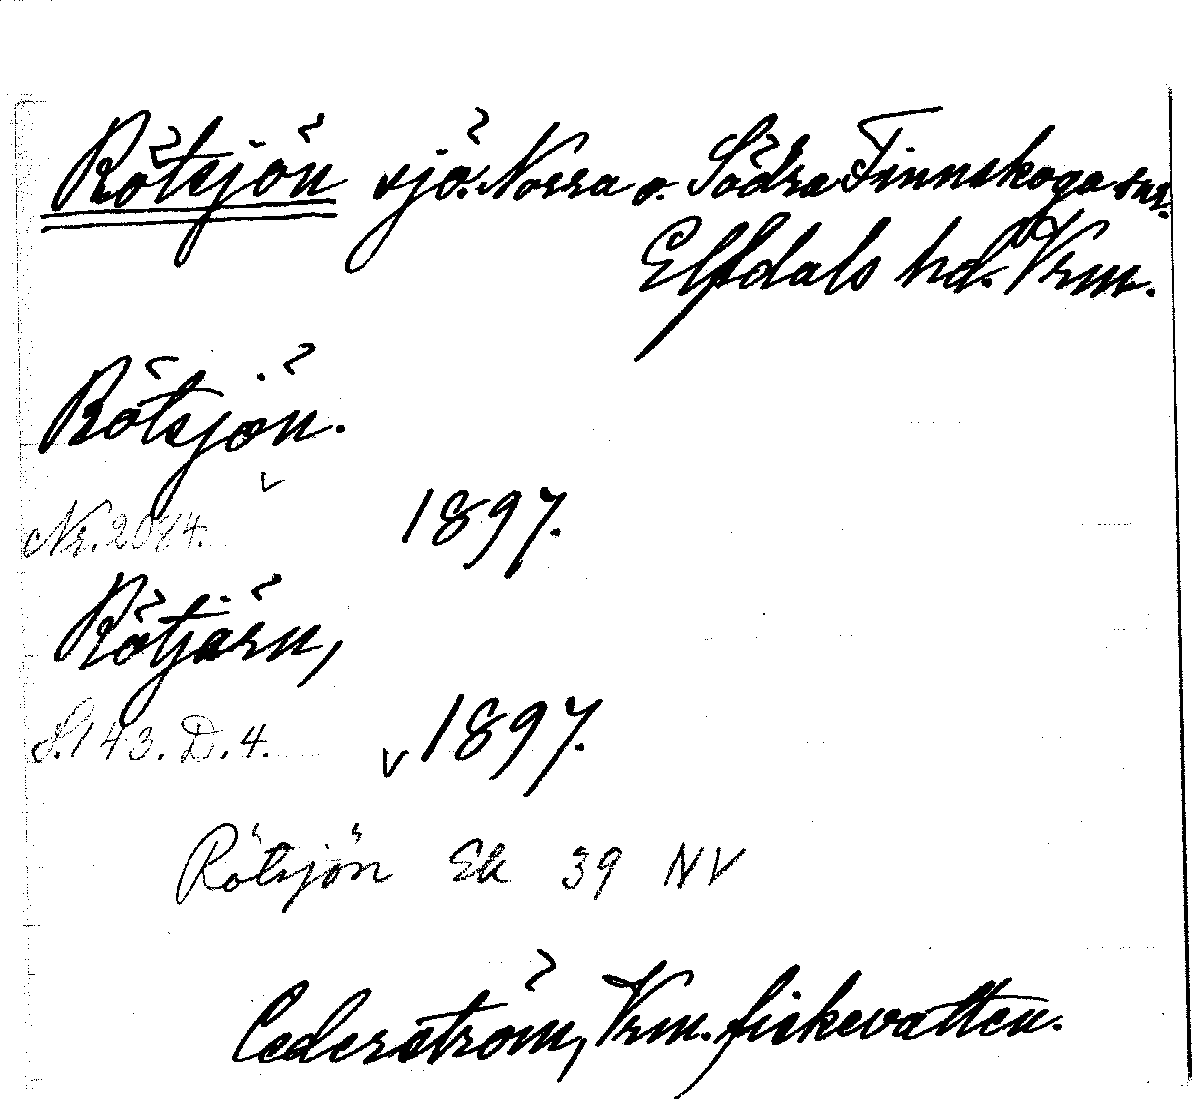 Rötsjön sjö. Norra o. Södra Finnskoga snr.
Elfdals hd. Vrm.
Rötsjön.
Nr. 2084. 1897.
Rötjärn,
S. 143. D. 4. 1897.
Rötsjön Ek 39 NV
Cederström, Vrm. fiskevatten.